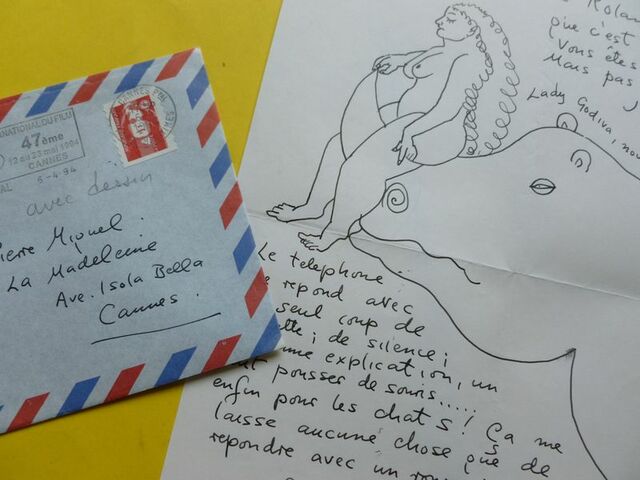 NATIONAL DU FILM
47ème
12 au 23 mai 1994
CANNES
6-4-94
avec dessin
ierre Miquel
La Madeleine
Ave. Isola Bella
Cannes.
que c'est
Vous êtes
Mais pas
Lady Godiva,
Le telephone
repond avec
seul coup de
de silence;
explication, un
pousser de souris.....
enfin pour les chats! Ça me
laisse aucune chose que de
repondre avec un